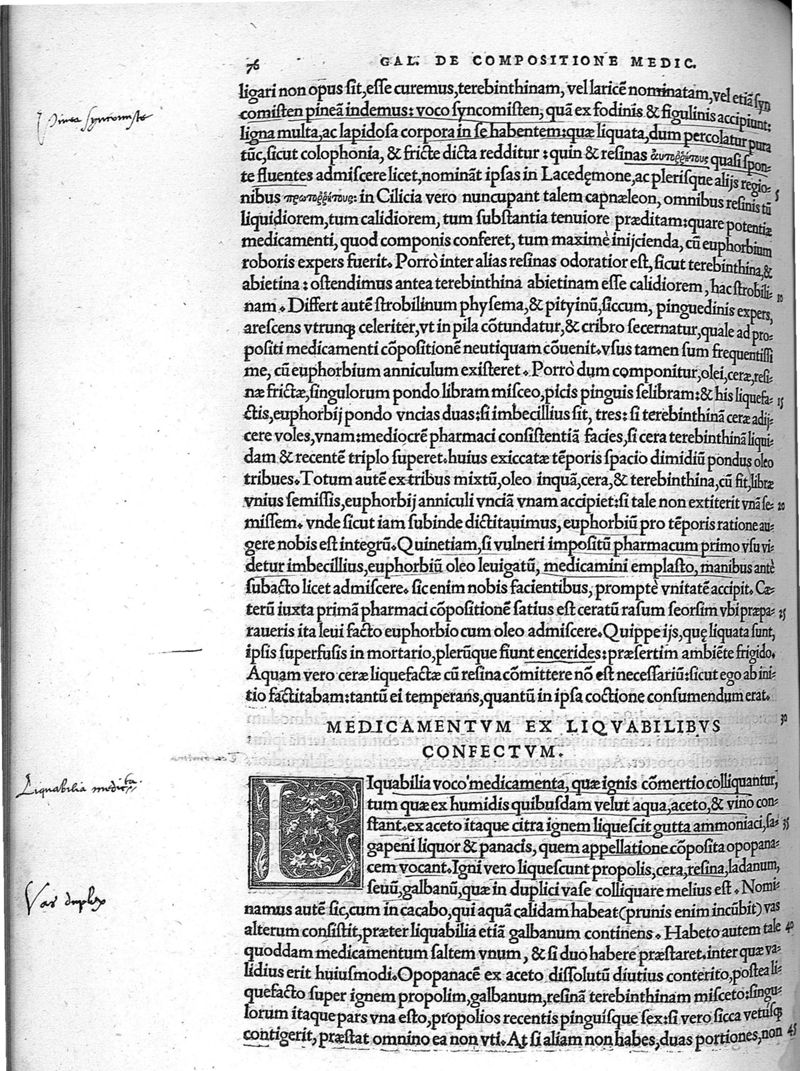 76 GAL. DE COMPOSITIONE MEDIC.
ligari non opus sit, esse curemus, terebinthinam, vel laricẽ nominatam, vel etiã syn
comisten pineã indemus: voco syncomisten, quã ex fodinis & figulinis accipiunt:
Pinea syncomiste
ligna multa, ac lapidosa corpora in se habentem: quæ liquata, dum percolatur pura
tũc, sicut colophonia, & fricte dicta redditur: quin & resinas αυτοῤῥύτους quasi spon
te fluentes admiscere licet, nominãt ipsas in Lacedęmone, ac plerisque alijs regio-
nibus πρωτοῤῥύτους: in Cilicia vero nuncupant talem capnæleon, omnibus resinis tũ 5
liquidiorem, tum calidiorem, tum substantia tenuiore præditam: quare potentiæ
medicamenti, quod componis conferet, tum maximè inijcienda, cũ euphorbium
roboris expers fuerit. Porrò inter alias resinas odoratior est, sicut terebinthina, &
abietina: ostendimus antea terebinthina abietinam esse calidiorem, hac strobili- 10
nam. Differt autẽ strobilinum physema, & pityinũ, siccum, pinguedinis expers,
arescens vtrunq; celeriter, vt in pila cõtundatur, & cribro secernatur, quale ad pro-
positi medicamenti cõpositionẽ neutiquam cõuenit. vsus tamen sum frequentissi
me, cũ euphorbium anniculum existeret. Porrò dum componitur, olei, ceræ, resi-
næ frictæ, singulorum pondo libram misceo, picis pinguis selibram: & his liquefa- 15
ctis, euphorbij pondo vncias duas: si imbecillius sit, tres: si terebinthinã ceræ adij-
cere voles, vnam: mediocrẽ pharmaci consistentiã facies, si cera terebinthinã liqui-
dam & recentẽ triplo superet. huius exiccatæ tẽporis spacio dimidiũ pondus oleo
tribues. Totum autẽ ex tribus mixtũ, oleo inquã, cera, & terebinthina, cũ fit, libræ
vnius semissis, euphorbij anniculi vnciã vnam accipiet: si tale non extiterit vnã se- 20
missem. vnde sicut iam subinde dictitauimus, euphorbiũ pro tẽporis ratione au-
gere nobis est integrũ. Quinetiam, si vulneri impositũ pharmacum primo vsu vi-
detur imbecillius, euphorbiũ oleo leuigatũ, medicamini emplasto, manibus antè
subacto licet admiscere. sic enim nobis facientibus, promptè vnitatẽ accipit. Cæ-
terũ iuxta primã pharmaci cõpositionẽ satius est ceratũ rasum seorsim vbi præpa- 25
raueris ita leui facto euphorbio cum oleo admiscere. Quippe ijs, quę liquata sunt,
ipsis superfusis in mortario, plerũque fiunt encerides: præsertim ambiẽte frigido.
Aquam vero ceræ liquefactæ cũ resina cõmittere nõ est necessariũ: sicut ego ab ini-
tio factitabam: tantũ ei temperans, quantũ in ipsa coctione consumendum erat.
MEDICAMENTVM EX LIQVABILIBVS 30
CONFECTVM.
LIquabilia voco medicamenta, quæ ignis cõmertio colliquantur,
Liquabilia medicta.
tum quæ ex humidis quibusdam velut aqua, aceto, & vino con-
stant. ex aceto itaque citra ignem liquescit gutta ammoniaci, sa- 35
gapeni liquor & panacis, quem appellatione cõposita opopana-
cem vocant. Igni vero liquescunt propolis, cera, resina, ladanum,
seuũ, galbanũ, quæ in duplici vase colliquare melius est. Nomi-
Vas duplex
namus autẽ sic, cum in cacabo, qui aquã calidam habeat (prunis enim incũbit) vas
alterum consistit, præter liquabilia etiã galbanum continens. Habeto autem tale 40
quoddam medicamentum saltem vnum, & si duo habere præstaret. inter quæ va-
lidius erit huiusmodi. Opopanacẽ ex aceto dissolutũ diutius conterito, postea li-
quefacto super ignem propolim, galbanum, resinã terebinthinam misceto: singu-
lorum itaque pars vna esto, propolios recentis pinguisque sex: si vero sicca vetusq;
contigerit, præstat omnino ea non vti. At si aliam non habes, duas portiones, non 45